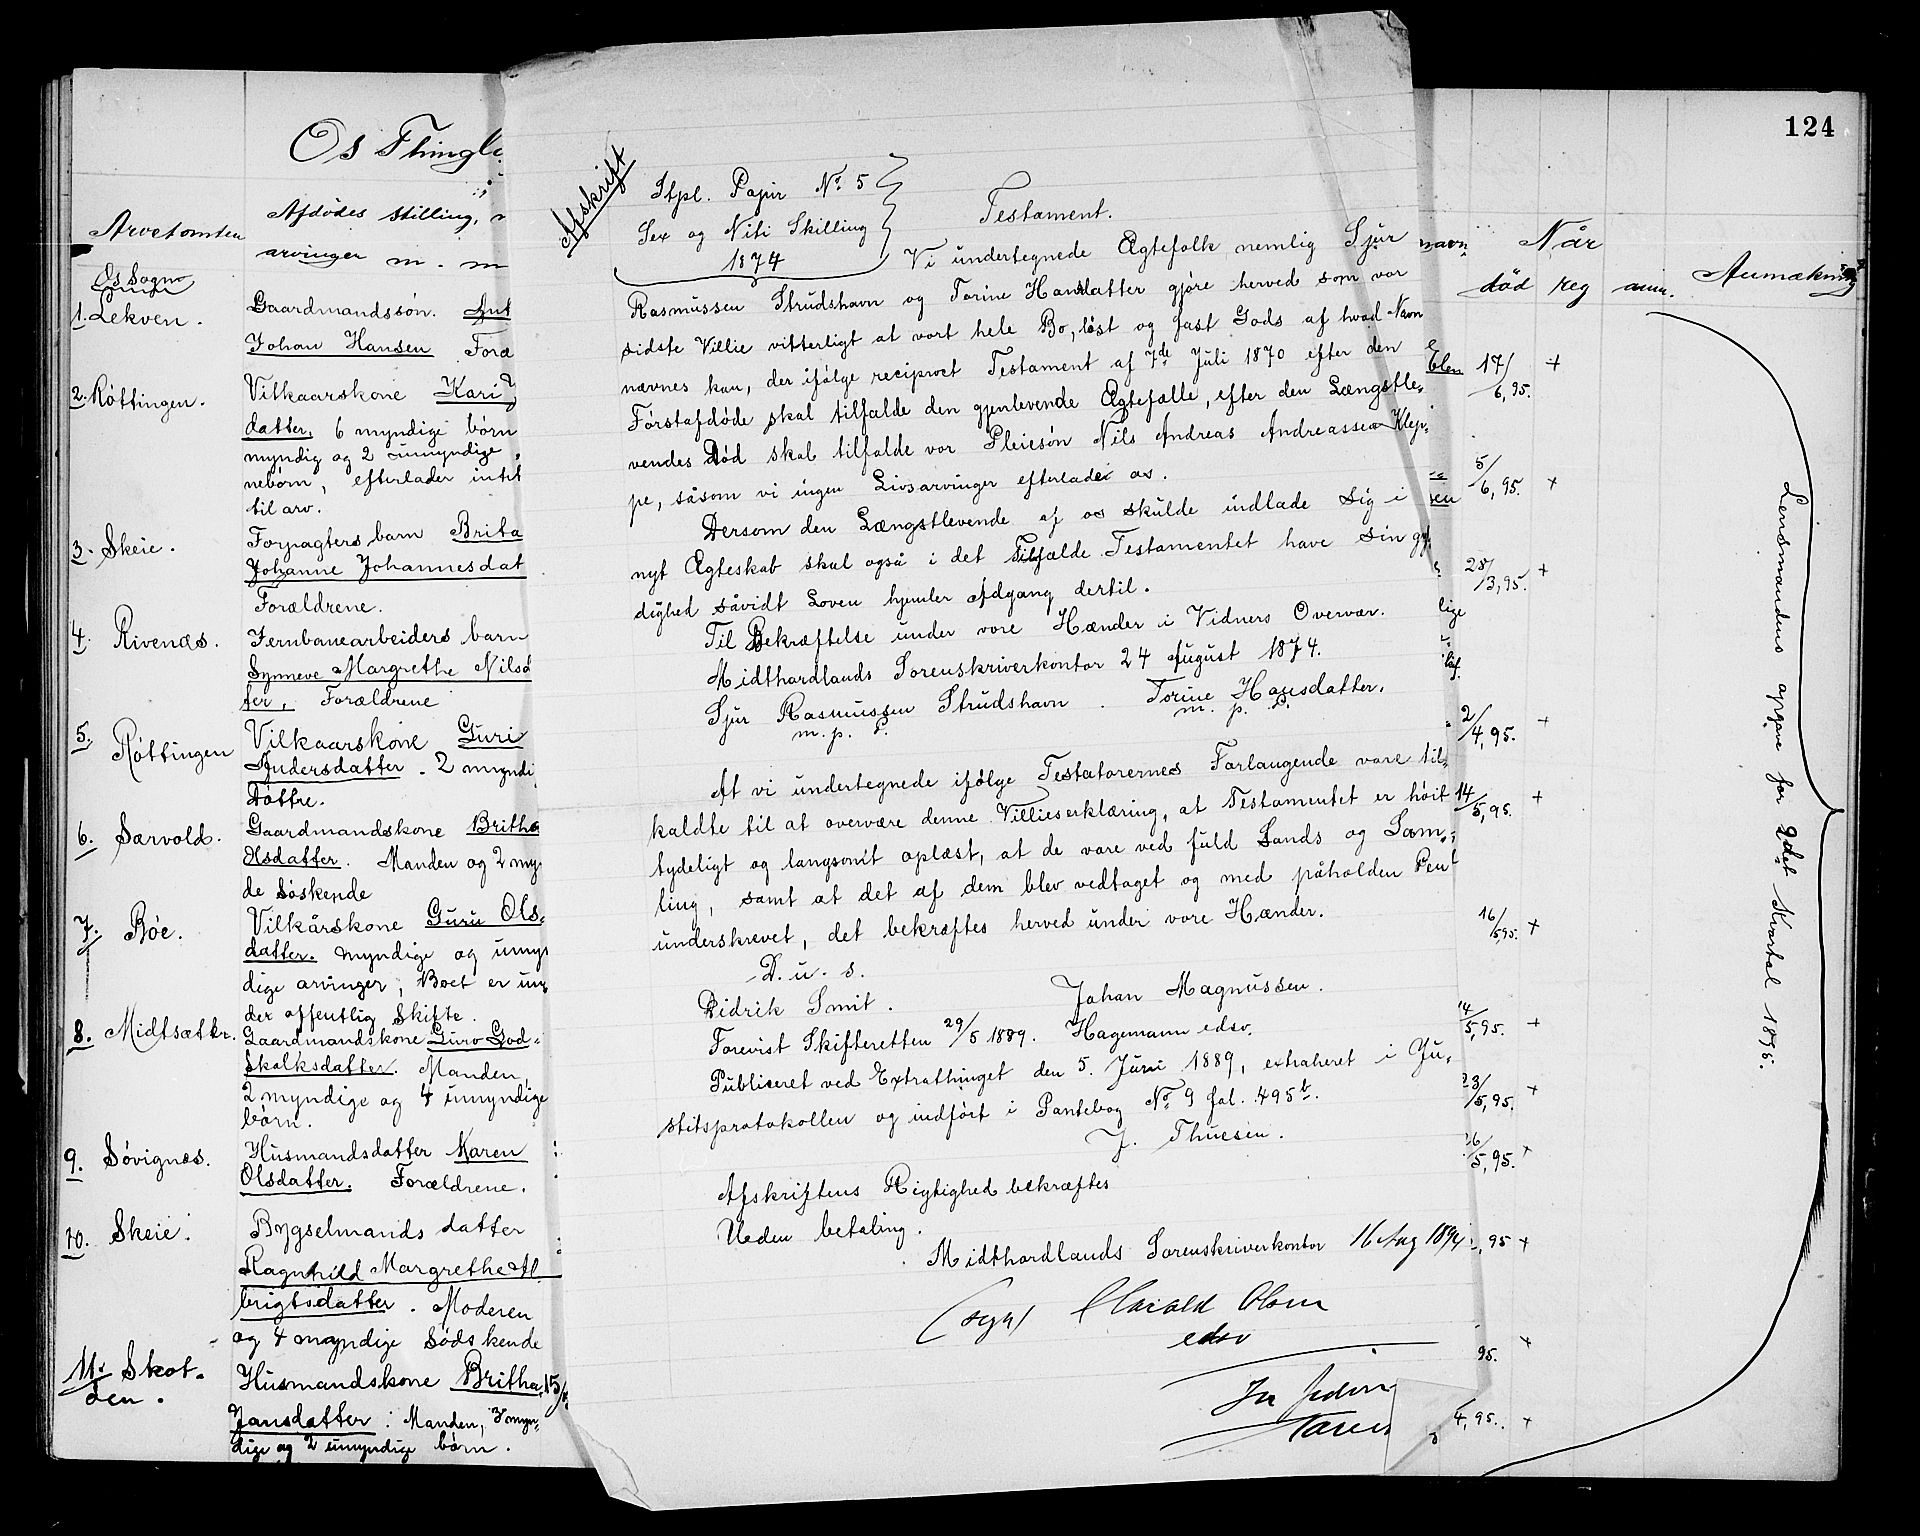 124
Os Thingl
Arvetomten
Afdödes stilling,
arvinger m. m
Os Sogn
1. Lekven.
Gaardmandssön. Ant
Johan Hansen Foræ
2. Röttingen.
Vilkaarskone Kari
datter, 6 myndige börn
myndig og 2 umyndige
nebörn, efterlader intet
til arv.
3. Skeie.
Forpagters barn Brita
Johanne Johannesdat
Forældrene.
4. Rivenæs.
Jernbanearbeiders barn
Synneve Margrethe Nilsd
ter, Forældrene
5. Röttingen
Vilkaarskone Guri
Andersdatter. 2 myndi
döttre.
6. Særvold.
Gaardmandskone Britha
Olsdatter. Manden og 2 my
de söskende
7. Böe.
Vilkårskone Guru Ols-
datter. myndige og umyn
dige arvinger; Boet er un
der offentlig Skifte.
8. Midtsætr.
Gaardmandskone Guro God-
skalksdatter. Manden,
2 myndige og 4 umyndige
börn.
9. Sövignæs.
Husmandsdatter Karen
Olsdatter. Forældrene.
10. Skeie.
Bygselmands datter
Ragnhild Margrethe Al
brigtsdatter. Moderen
og 4 myndige södskende
11. Skot-
den.
Husmandskone Britha 15/
Jansdatter: Manden, 3 myn-
dige og 2 umyndige börn.
Afskrift
Stpl. Papir No. 5
Sex og Niti Skilling
1874
Testament.
Vi undertegnede Ægtefolk nemlig Sjur
Rasmussen Strudshavn og Torine Hansdatter gjöre herved som vor
sidste Villie vitterligt at vort hele Bo, löst og fast Gods af hvad Navn
nævnes kan, der ifölge reciproct Testament af 7de Juli 1870 efter den
Förstafdöde skal tilfalde den gjenlevende Ægtefælle, efter den Længstle-
vendes Död skal tilfalde vor Pleiesön Nils Andreas Andreassen Klep-
pe, såsom vi ingen Livsarvinger efterlader os.
Dersom den Længstlevende af os skulde indlade sig i
nyt Ægteskab skal også i det Tilfælde Testamentet have sin gyl
dighed såvidt Loven hjemler Adgang dertil.
Til Bekræftelse under vore Hænder i Vidners Overvær.
Midthordlands Sorenskriverkontor 24 August 1874.
Sjur Rasmussen Strudshavn. Torine Hansdatter.
m. p. P. m. p. P.
At vi undertegnede ifölge Testatorernes Forlangende vare til-
kaldte til at overvære denne Villieserklæring, at Testamentet er höit
tydeligt og langsomt oplæst, at de vare ved fuld Sands og Sam-
ling, samt at det af dem blev vedtaget og med påholden Pen
underskrevet, det bekræftes herved under vore Hænder.
D. u. s.
Didrik Smit. Johan Magnussen.
Forevist Skifteretten 29/5 1889. Hagemann edsv.
Publiceret ved Extrathinget den 5. Juni 1889, extraheret i Ju-
stitsprotokollen og indfört i Pantebog No. 9 fol. 495b.
J. Thuesen.
Afskriftens Rigtighed bekræftes
Uden betaling.
Midthordlands Sorenskriverkontor 16 Aug 1894
(sign) Harald Olsen
edsv
navn
Når
död reg anm.
Anmærkning
Elen 17/6, 95. +
sen 5/6, 95. +
28/3, 95. +
lige
2/4, 95. +
14/5, 95. +
16/5 95. +
14/5, 95. +
23/5, 95. +
26/5, 95. +
, 95 +
95. +
4, 95. +
Lensmandens opgave for 2det Kvartal 1895.